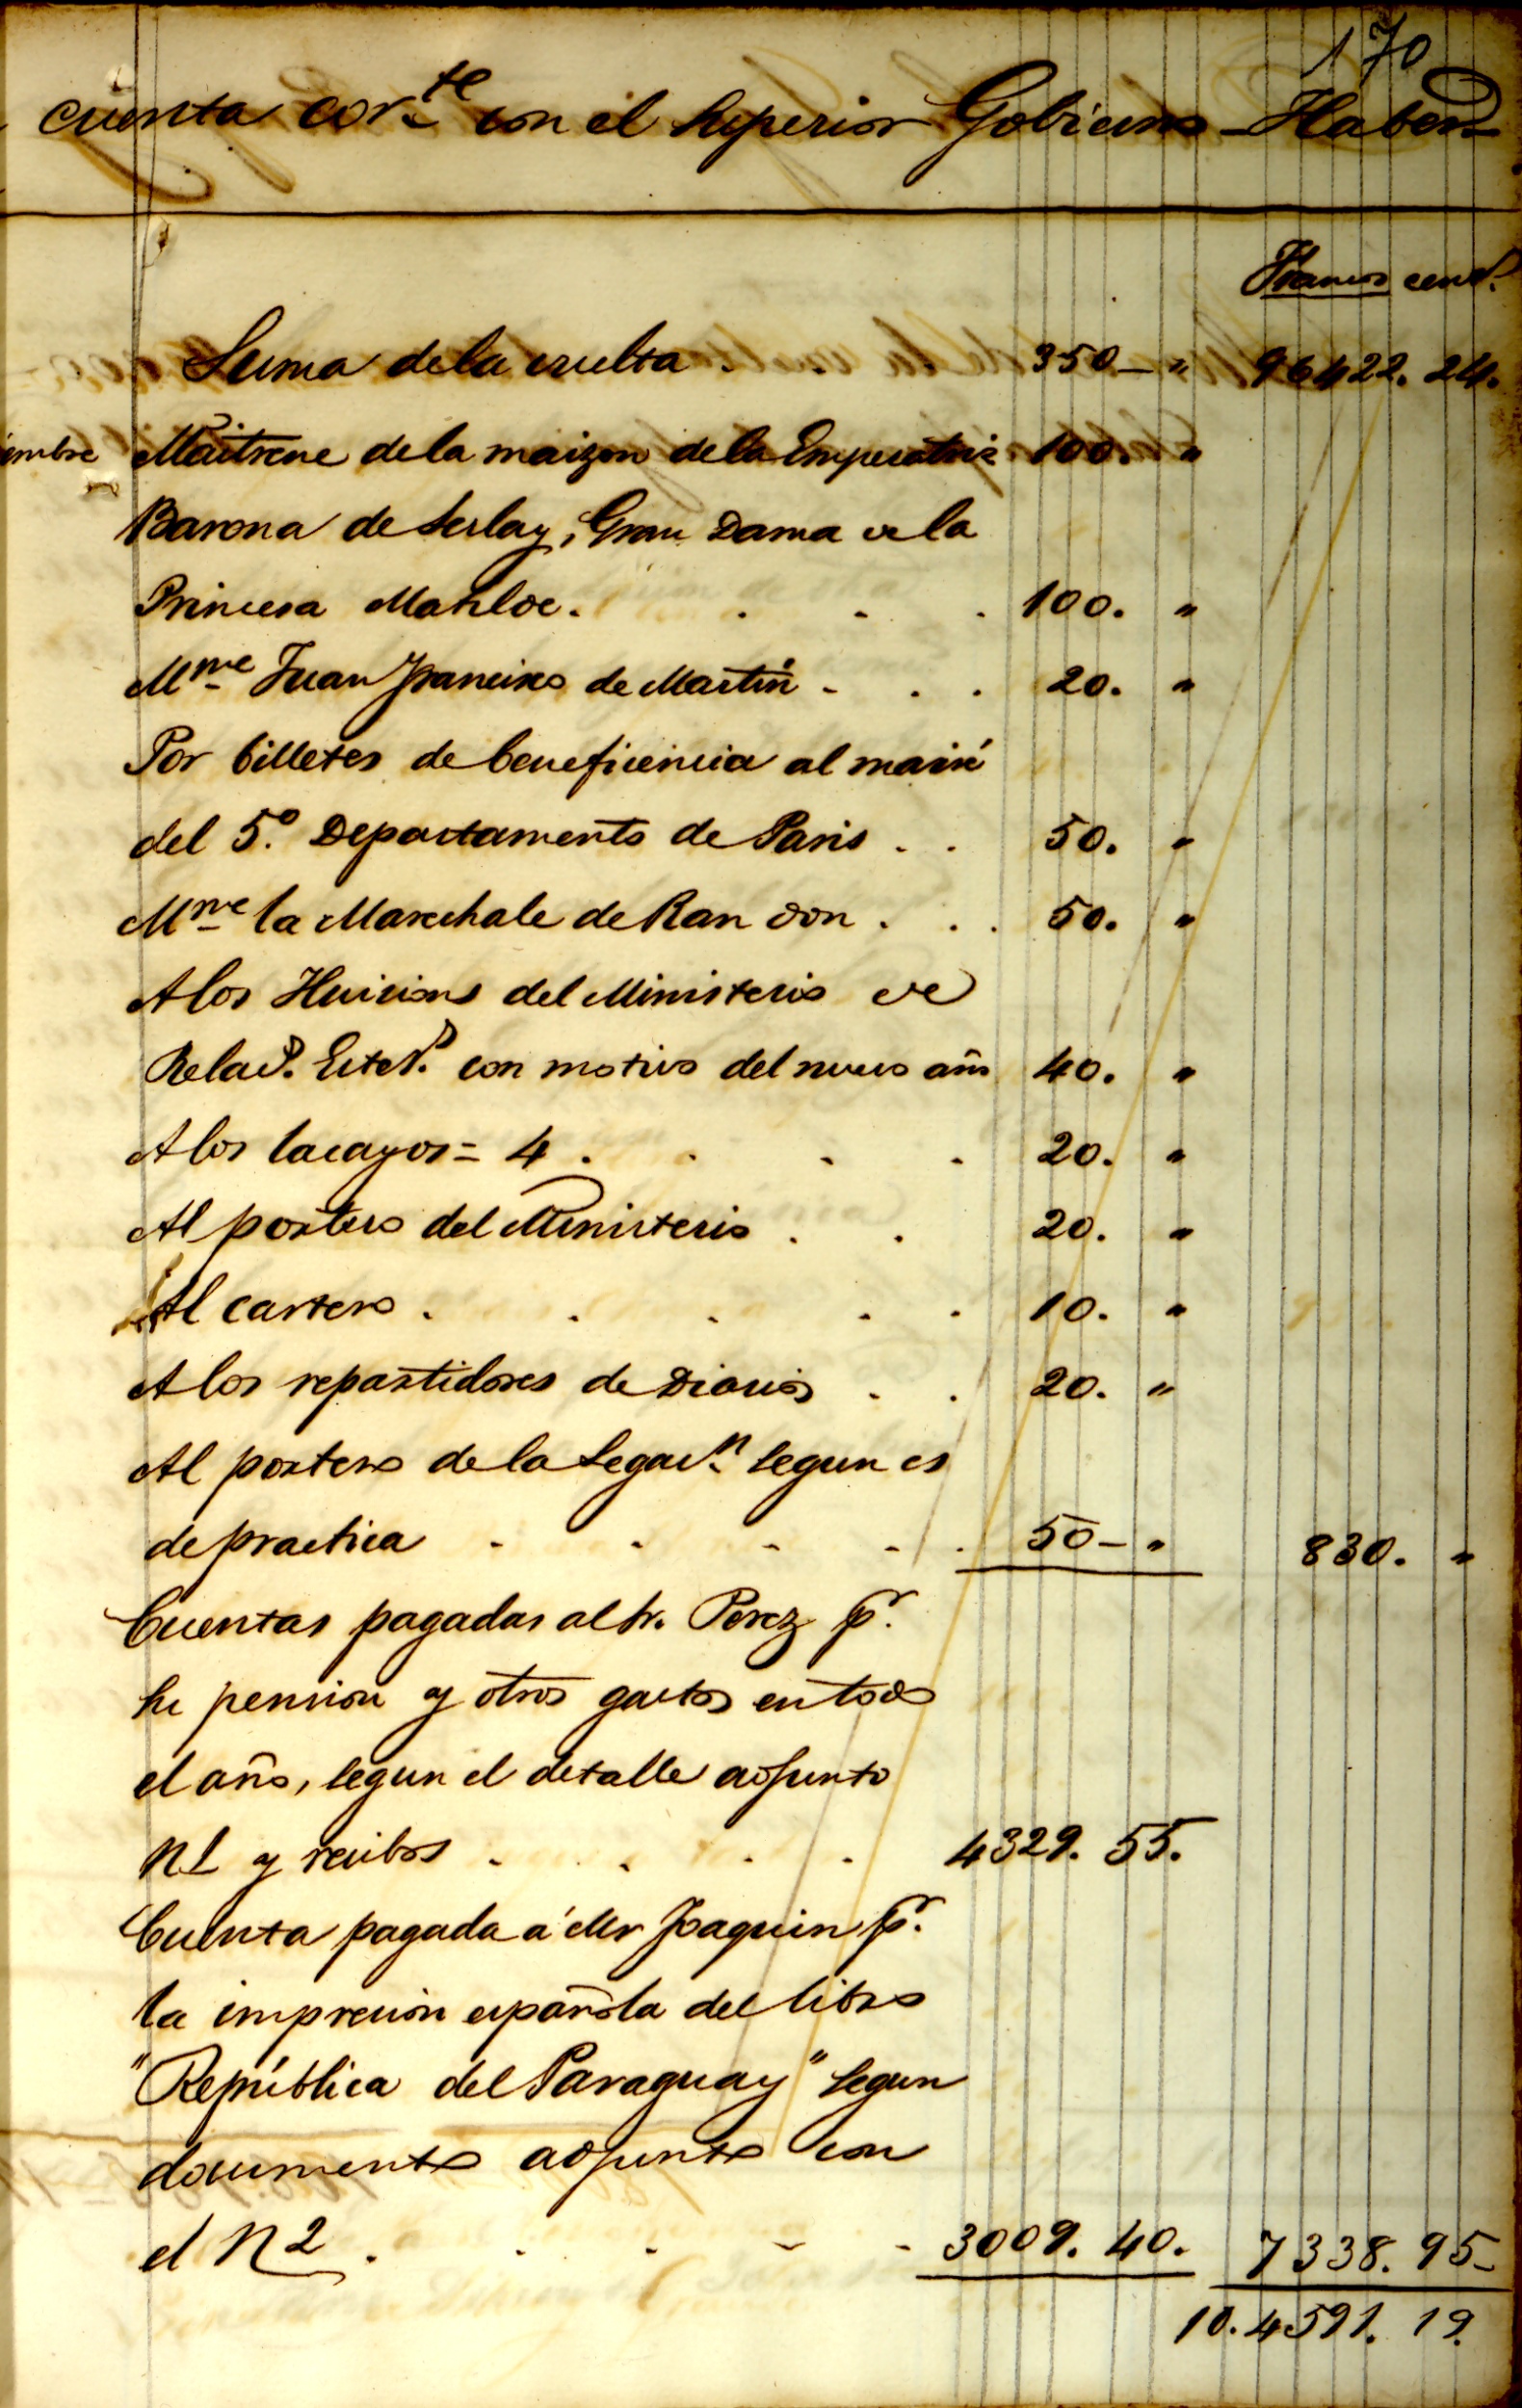 170
cuenta corte con el Superior Gobierno - Haber
Francos cents.
Suma de la vuelta . 350 - " 96422. 24.
iembre Maitrene de la maizon de la Emperatriz 100. "
Barona de Serlay, Gran Dama de la
Princesa Matilde. . . . 100. "
Mme Juan Francisco de Martin - . . 20. "
Por billetes de beneficiencia al mairé
del 5º. Departamento de Paris . . 50. "
Mme la Marechale de Randon . . . 50. "
A los Huiciers del Ministerio de
Relacs. Exters. con motivo del nuevo año 40. "
A los lacayos = 4 . . . . 20. "
Al portero del Ministerio . . 20. "
Al cartero . . . . . 10. "
A los repartidores de Diarios . . 20. "
Al portero de la Legacn. segun es
de practica . . . . . 50 - " 830. "
Cuentas pagadas al Sr. Perez pr.
su pension y otros gastos en todo
el año, segun el detalle adjunto
N1 y recibos . . . . 4329. 55.
Cuenta pagada á Mr Joaquin pr.
la impresion española del libro
"República del Paraguay" segun
documento adjunto con
el N2 . . . . . 3009. 40. 7338. 95 -
10.4591. 19.